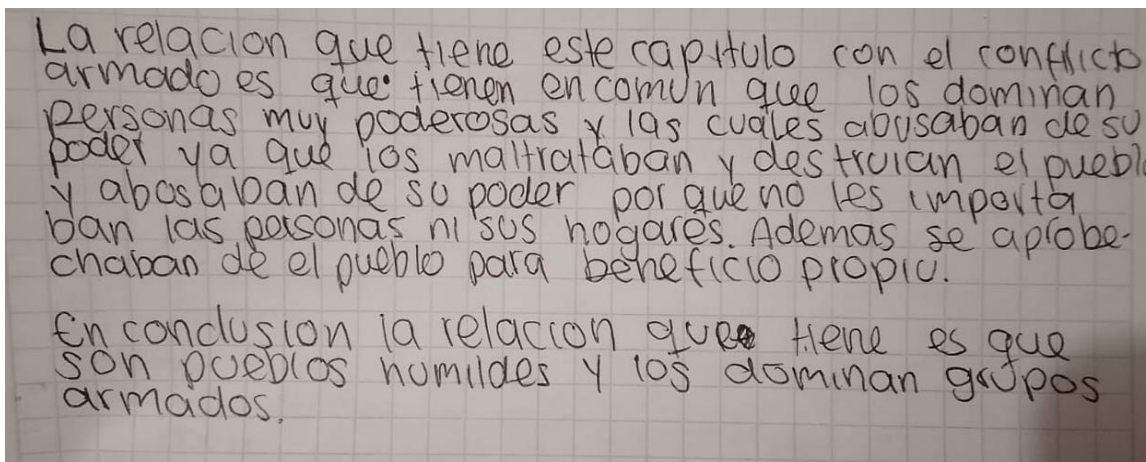 La relacion que tiene este capitulo con el conflicto
armado es que tienen en comun que los dominan
personas muy poderosas y las cuales abusaban de su
poder ya que los maltrataban y destruian el pueblo
y abosaban de su poder por que no les importa
ban las personas ni sus hogares. Ademas se aprobe-
chaban de el pueblo para beneficio propio.
En conclusion la relacion que tiene es que
son pueblos humildes y los dominan grupos
armados.